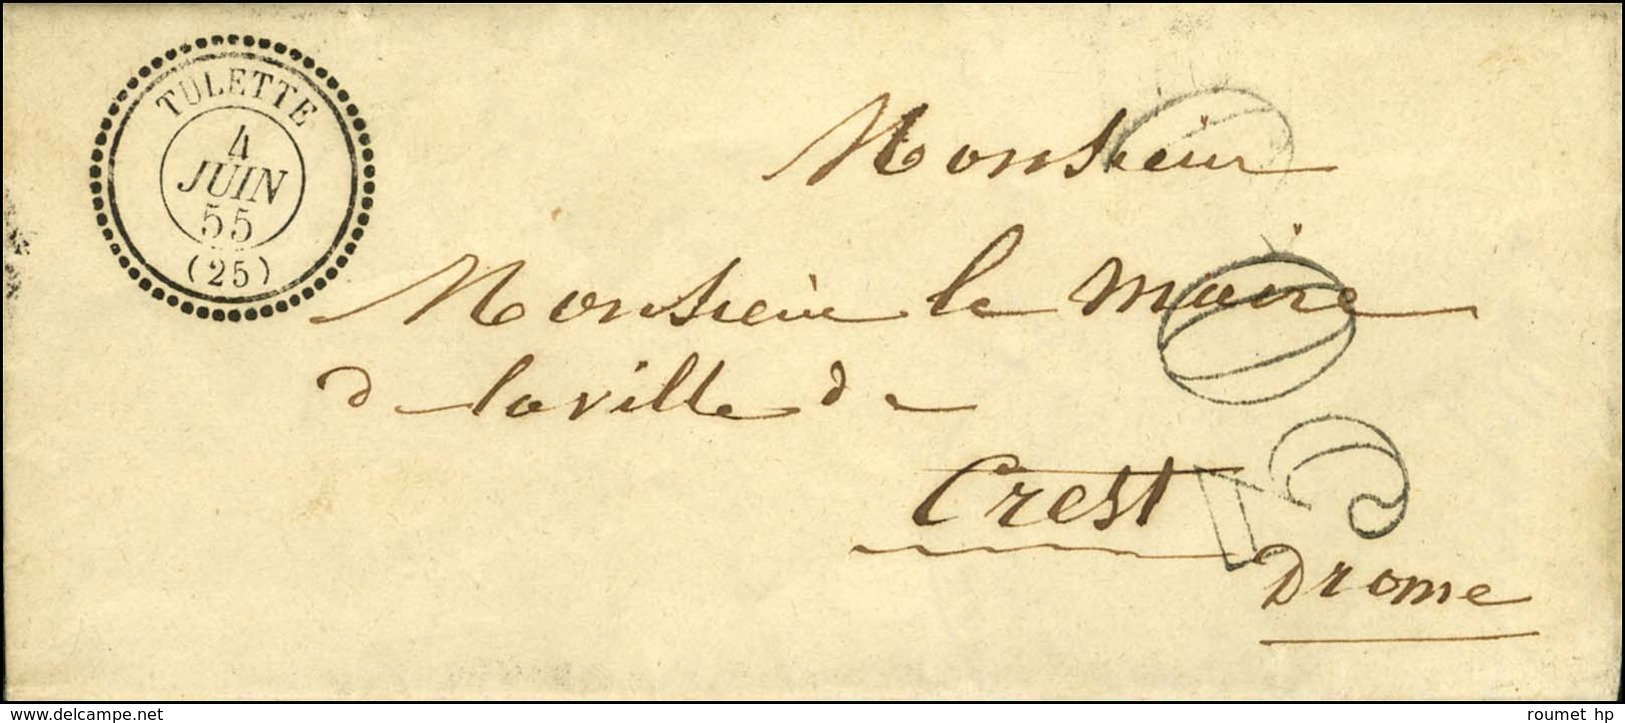 TULETTE
4
JUIN
55
(25)
Monsieur
Monsieur le Maire
de la ville de
Crest
Drome
delcampe.net
roumet hp